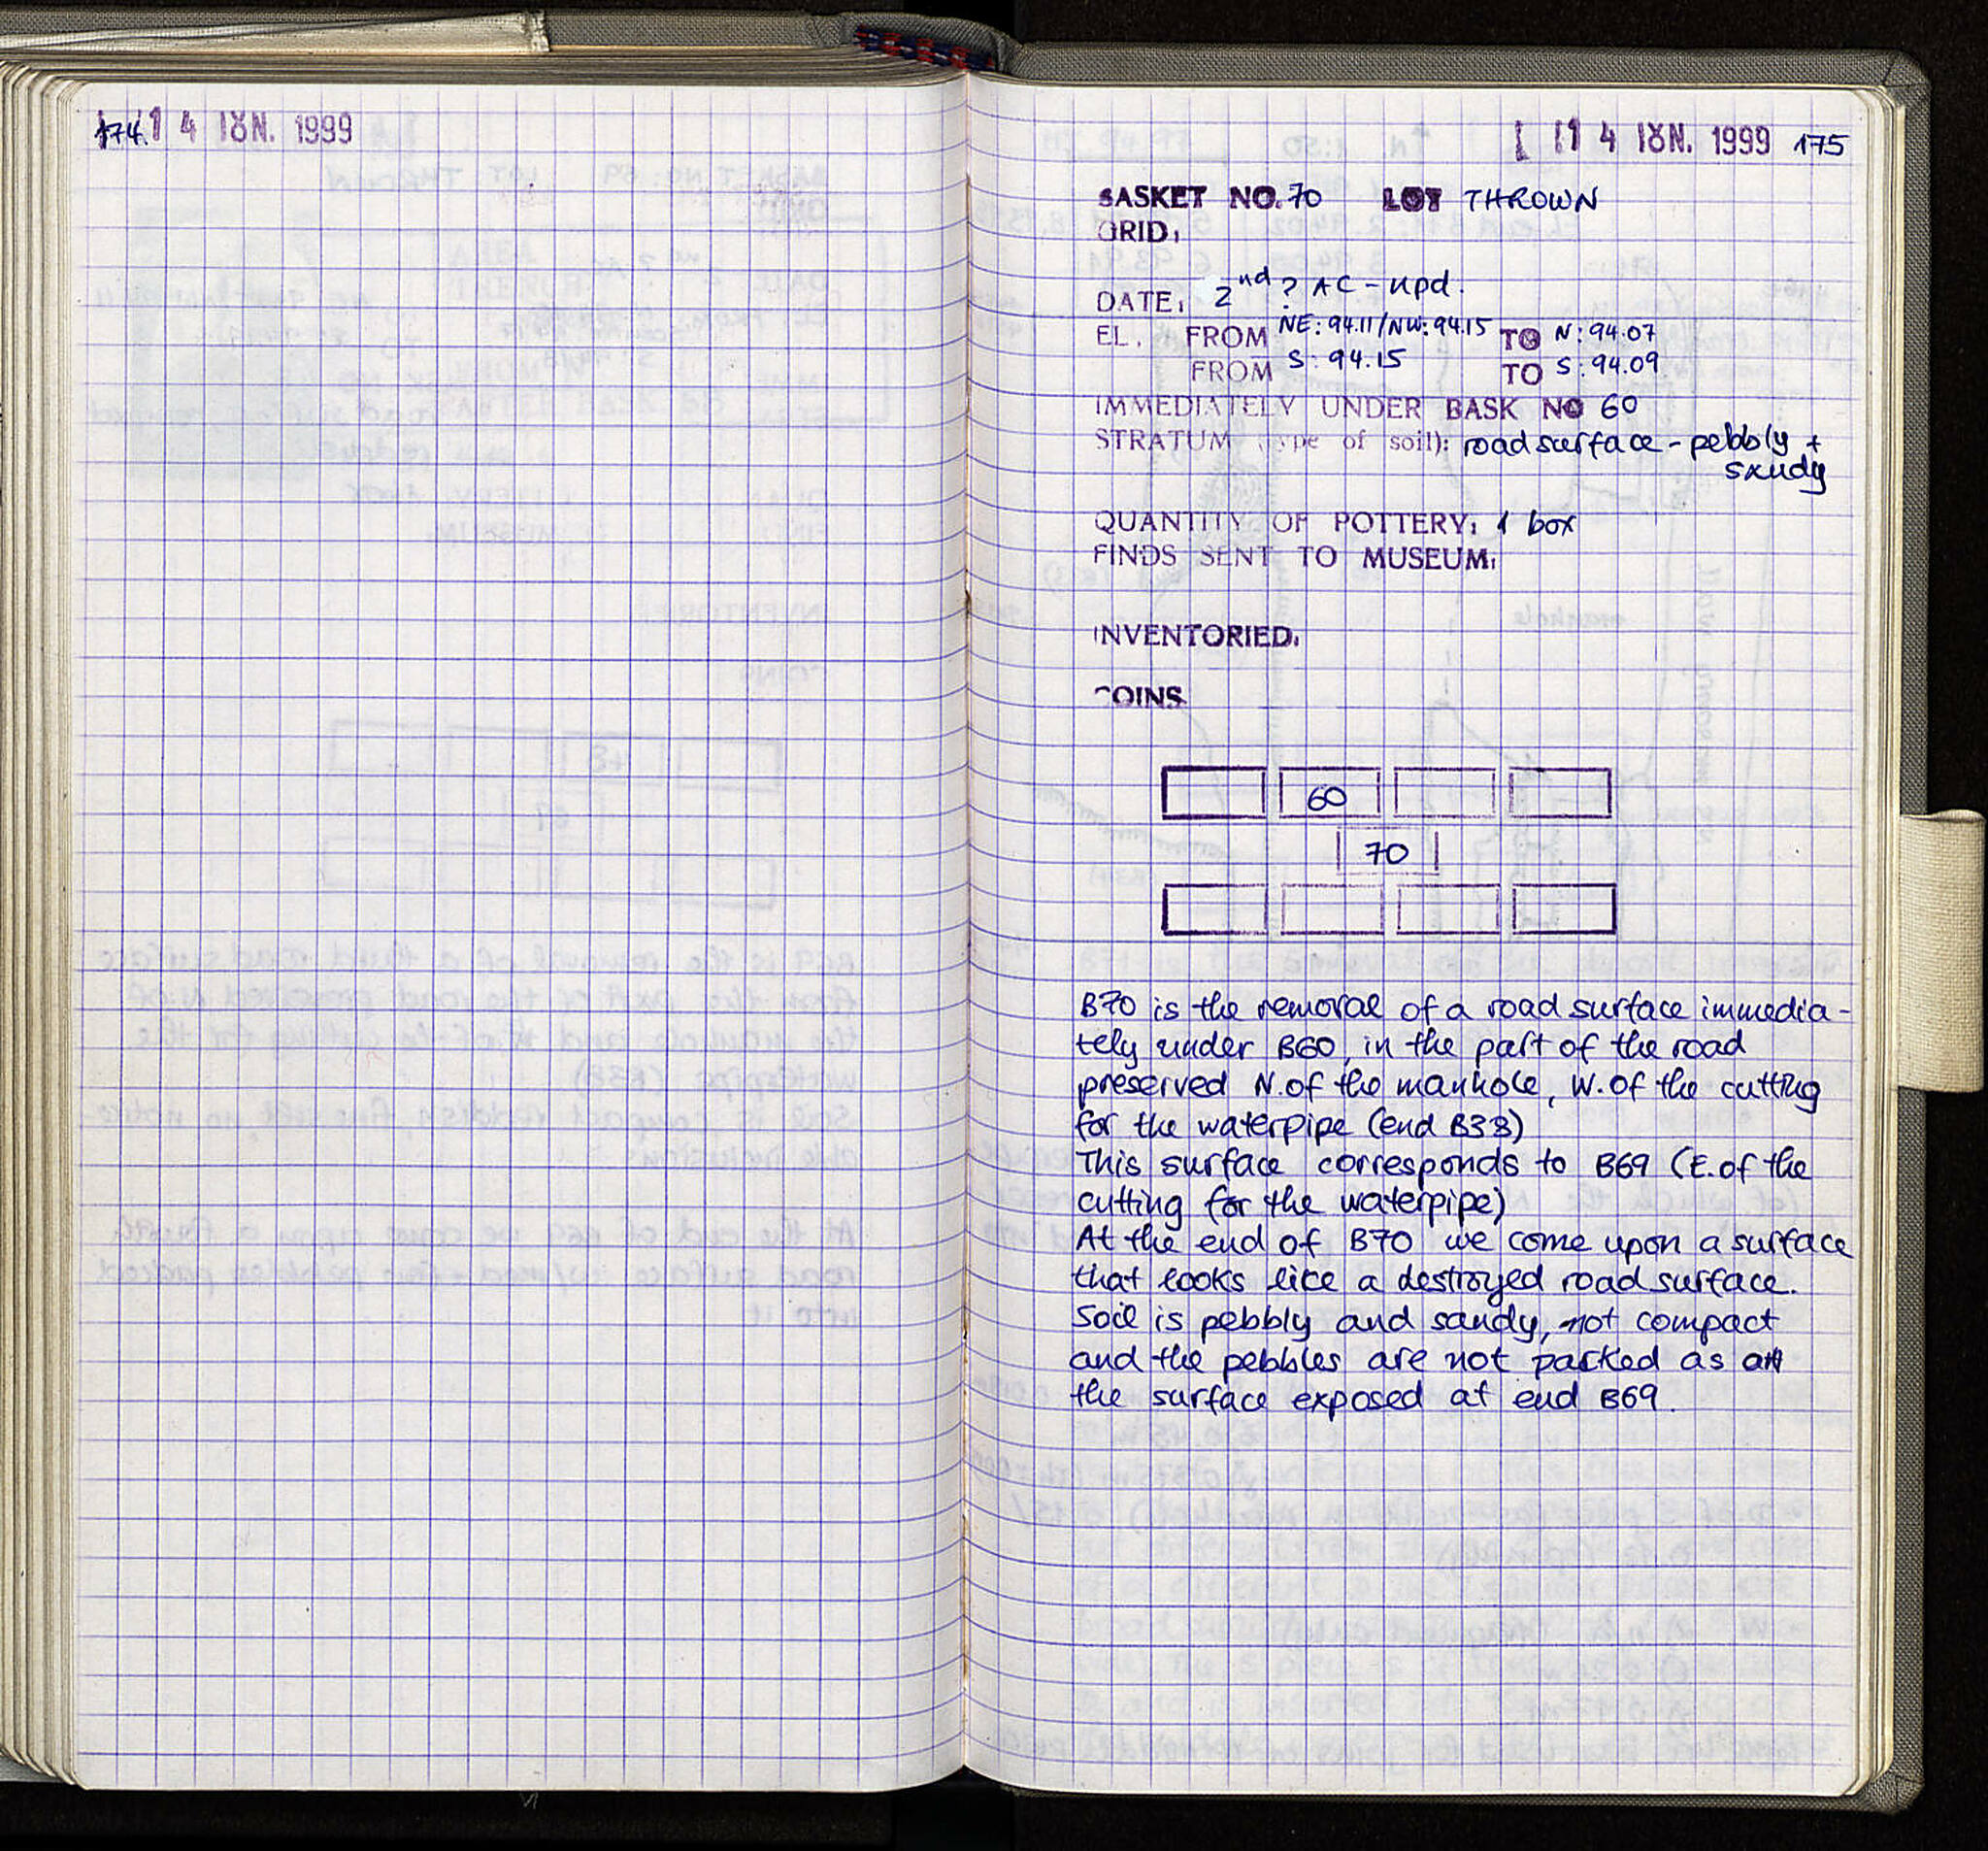 174. 14 ΙΟΥΝ. 1999
14 ΙΟΥΝ. 1999 175
BASKET NO. 70 LOT THROWN
GRID:
DATE: 2nd ? AC - upd.
EL. FROM NE: 94.11/NW: 94.15 TO N: 94.07
FROM S: 94.15 TO S: 94.09
IMMEDIATELY UNDER BASK NO 60
STRATUM (type of soil): road surface - pebbly +
sandy
QUANTITY OF POTTERY: 1 box
FINDS SENT TO MUSEUM:
INVENTORIED:
COINS
60
70
B70 is the removal of a road surface immedia-
tely under B60, in the part of the road
preserved N. of the manhole, W. of the cutting
for the waterpipe (end B38)
This surface corresponds to B69 (E. of the
cutting for the waterpipe)
At the end of B70 we come upon a surface
that looks like a destroyed road surface.
Soil is pebbly and sandy, not compact
and the pebbles are not packed as at
the surface exposed at end B69.